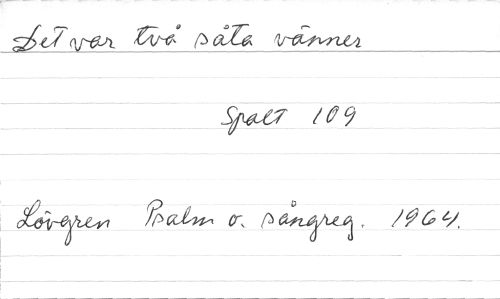 Det var två såta vänner
Spalt 109
Lövgren Psalm o. sångreg. 1964.